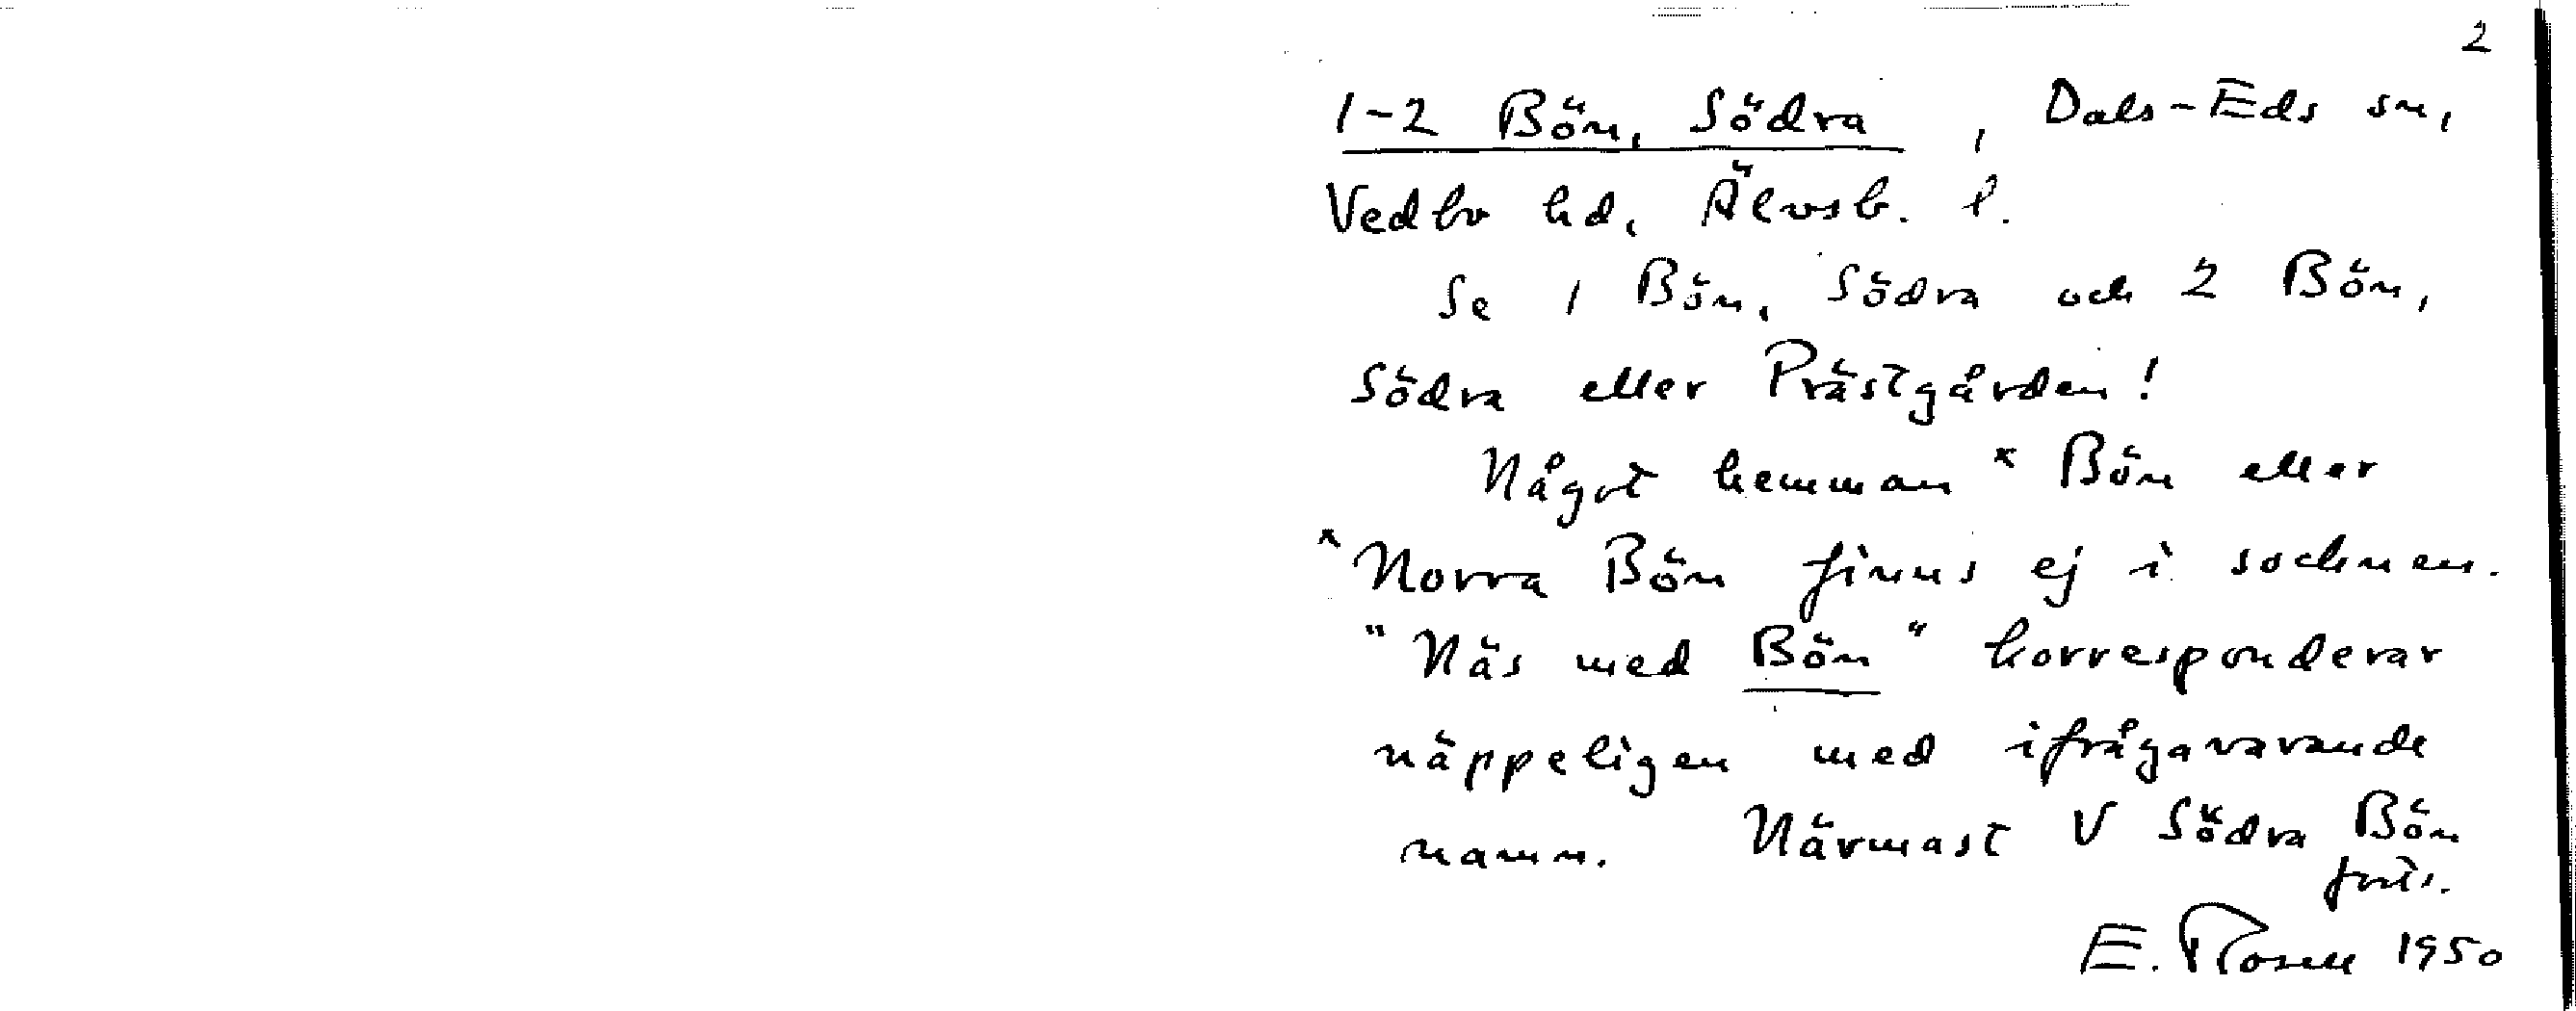 2
1-2 Bön, Södra, Dals-Eds sn,
Vedbo hd, Älvsb. l.
Se 1 Bön, Södra och 2 Bön,
Södra eller Prästgården!
Något hemman *Bön eller
*Norra Bön finns ej i socknen.
"Näs med Bön" korresponderar
näppeligen med ifrågavarande
namn. Närmast V Södra Bön
forts.
E. Rosell 1950